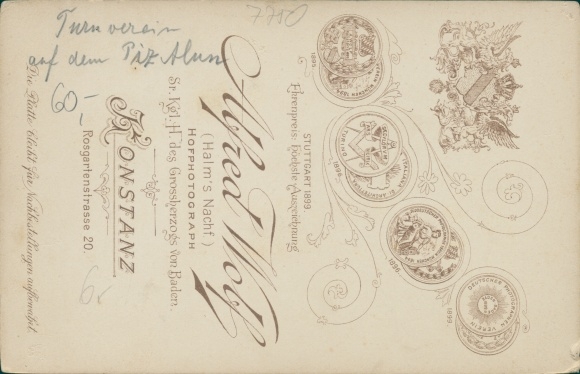 Turnverein
auf dem Piz Alun
60.-
7750
6.-
STUTTGART 1899
Ehrenpreis: höchste Auszeichnung.
Alfred Wolf
(Halm's Nachf.)
HOFPHOTOGRAPH
Sr. Kgl. H. des Grossherzogs von Baden.
KONSTANZ
Rosgartenstrasse 20.
Die Platte bleibt für Nachbestellungen aufbewahrt.
1895
TURIN
1896
DEUTSCHER PHOTOGRAPHEN VEREIN
1899